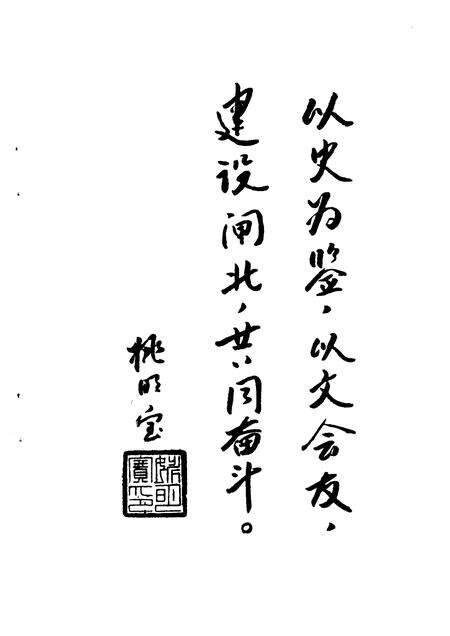 以史为鉴，以文会友，
建设闸北，共同奋斗。
姚明宝
姚明寶印